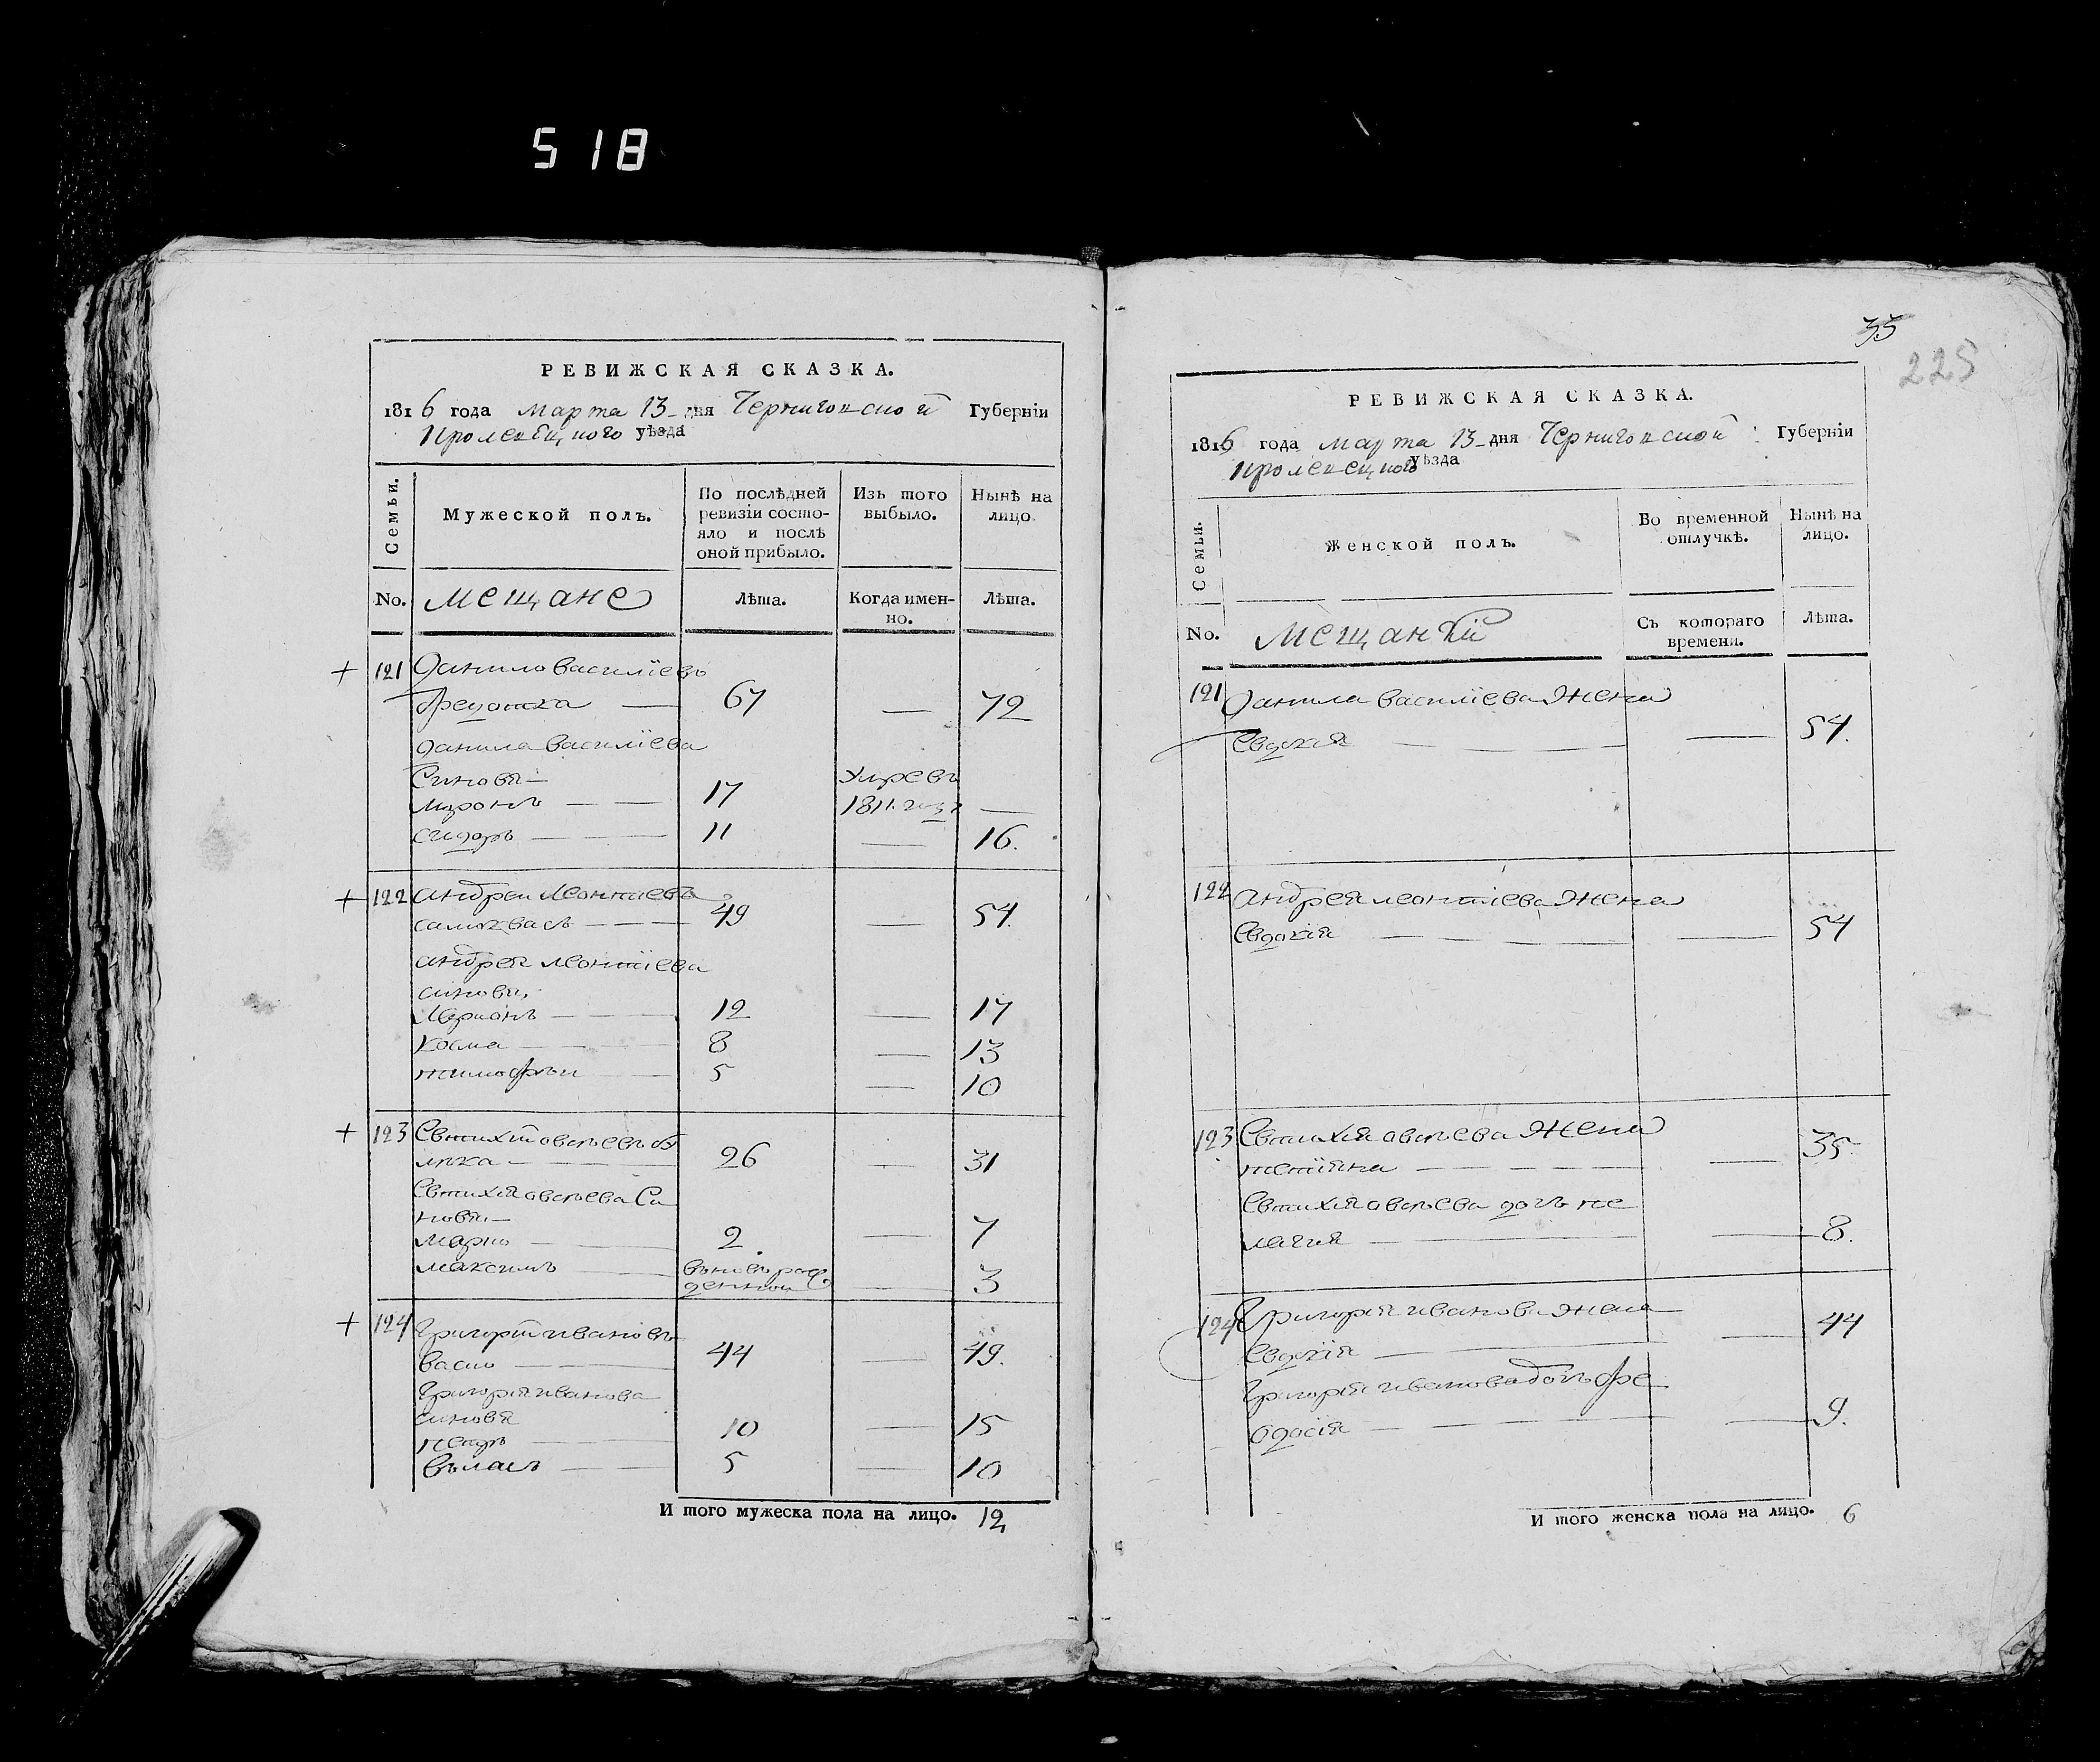 518
РЕВИЖСКАЯ СКАЗКА.
1816 года марта 13 дня Черниговской Губерніи
Кролевецкого уѣзда
Семьи.
Мужеской полъ.
По послѣдней ревизіи состояло и послѣ оной прибыло.
Изъ того выбыло.
Нынѣ на лицо.
No.
мещане
Лѣта.
Когда именно.
Лѣта.
121 Данило Василіевъ
67 — 72
Данила Василіева
Синовя
Миронъ — 17 Умре въ 1811 году —
Сидоръ — 11 — 16.
122 Андреи Леонтіевъ
49 — 54.
Андрея Леонтіева
синовя
Ларионъ — 12 — 17
Косма — 8 — 13
тимофѣи — 5 — 10
123 Евтихій
26 — 31
Евтихія Си
новя
Марко — 2. — 7
Максимъ — вновь рож
денной — 3
124 Григорій Ивановъ
44 — 49.
Григорія Иванова
синовя
петръ — 10 — 15
Вьласъ — 5 — 10
И того мужеска пола на лицо. 12
33
225
РЕВИЖСКАЯ СКАЗКА.
1816 года марта 13 дня Черниговской Губерніи
Кролевецкого уѣзда
Семьи.
Женской полъ.
Во временной отлучкѣ.
Нынѣ на лицо.
No.
Мещанкѣ
Съ котораго времени.
Лѣта.
121 Данила Василіева Жена
Евдокія — — 54.
122 Андрея Леонтіева Жена
Евдокія — — 54
123 Евтихія Жена
тетіяна — — 35
Евтихія дочь пе
лагия — — 8.
124 Григорія Иванова жена
Евдокія — — 44
Григорія Иванова дочь Фе
одосія — — 9.
И того женска пола на лицо. 6